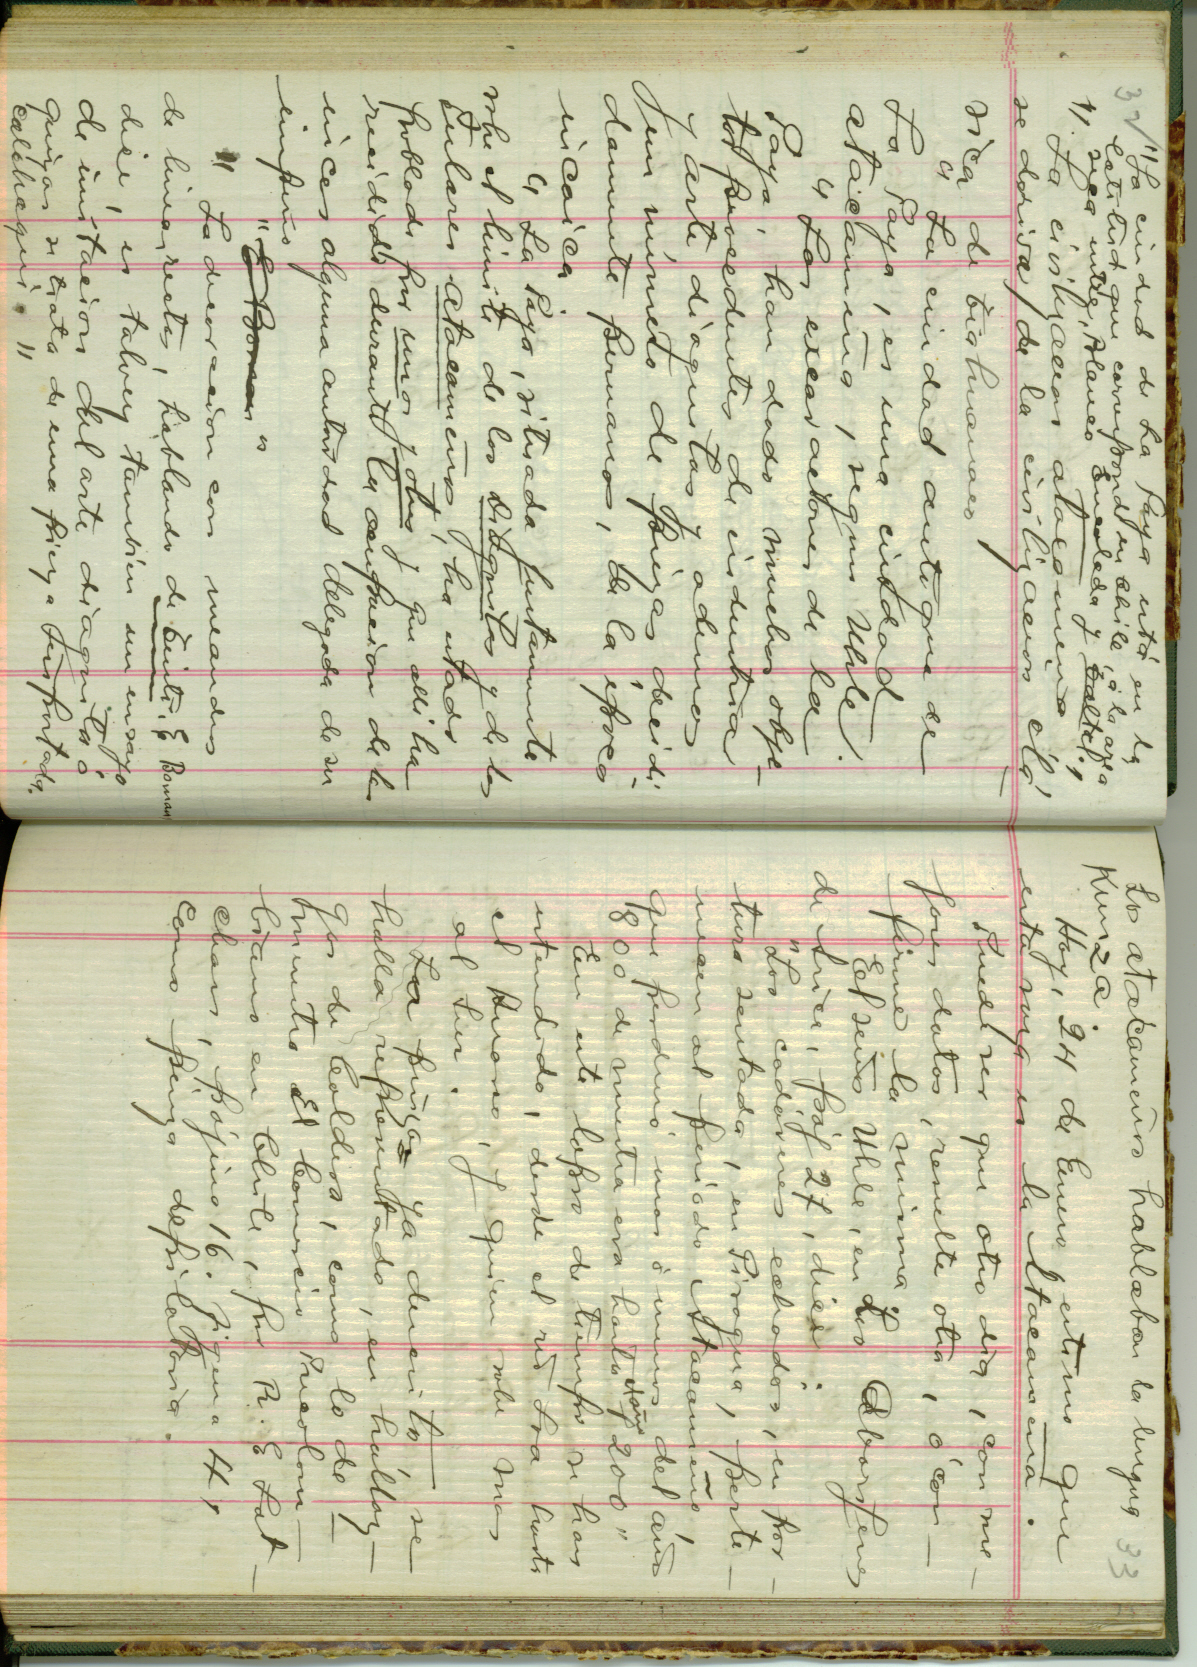 32
"La ciudad de La Paya está en la
latitud que corresponde en Chile, á la zona
sea entre, Blanco Encalada y Taltal;
"La civilizacion atacameña
se deriva de la civilizacion clá
sica de Tiahuanaco
" La ciudad antigua de
La Paya, es una ciudad
atacameña, segun Uhle.
" Las escavaciones de la
Paya, han dado muchos obje-
tos procedentes de industria
y arte diaguitas y ademas
gun número de piezas decidi
damente peruanas, de la época
incaica
" La Paya, situada justamente
sobre el límite de los Diaguitas y de los
Atacameños, ha estado
poblada por unos y otros y que alli ha
recidido durante la ocupacion de los
incas alguna autoridad delegada de su
imperio
" Boman "
" La decoracion con meandros
de lineas rectas, hablando de Tinti. E. Boman
dice, es talvez tambien un ensayo
de imitacion del arte diaguita ó
quizas se trata de una pieza importada.
calchaquí. "
33
Los atacameños hablaban la lengua
Kunza
Hoy, 24 de Enero estimo que
esta raza es la Atacameña.
Puede ser que otro dia, con me-
jores datos, resulte otra, ó con-
firme la misma
El señor Uhle, en Los Aborijenes
de Arica, páj 27, dice:
"Los cadáveres echados, en pos-
tura sentada, en Pisagua, perte-
necen al periodo Atacameño,
que perduró mas ó menos del año
800 de nuestra era hasta 1200"
En este lapso de tiempo se han
estendido, desde el rio Loa hasta
el Huasco, y quien sabe mas
al Sur.
La pieza ya descrita, se
halla representada, en hallaz-
gos de Caldera, como lo de-
muestra El Comercio Precolom-
biano en Chile, por R. E. Lat-
cham, pájina 16. Figura 4,
como pieza depilatoria.